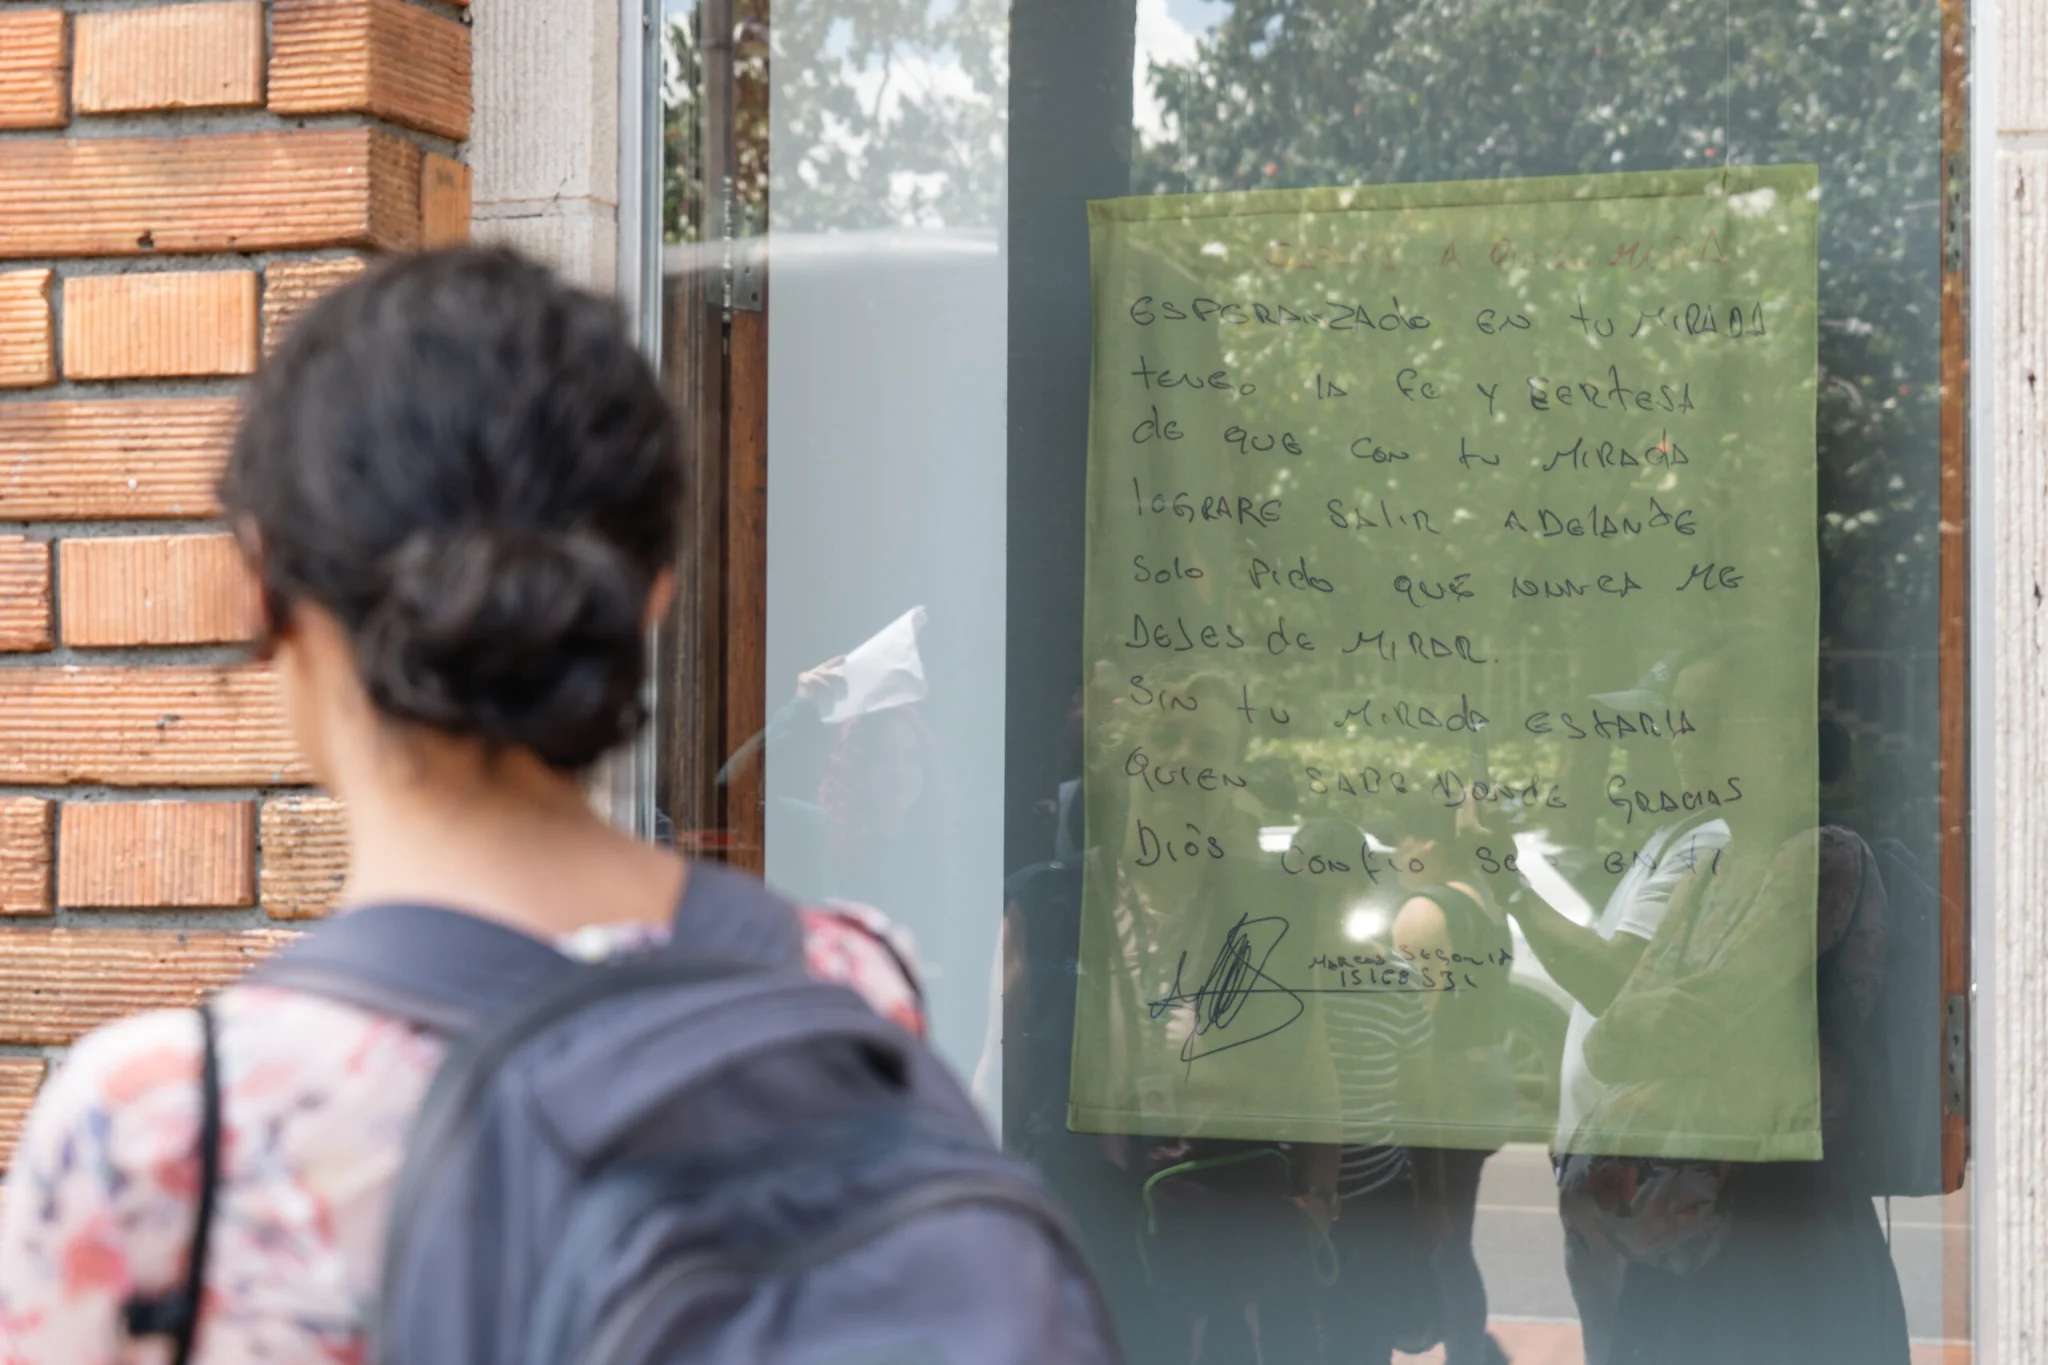 A QUIEN MIRA
ESPERANZAdo EN tu MIRADA
tENGo lA FE Y CERTESA
dE QUE CoN tu MIRAdA
loGRARE SAlIR ADElANtE
Solo PIdo QUE NUNCA ME
DEJES dE MIRAR.
SIN tu MIRAdA ESTARIA
QUIEN SABE DoNdE GRACIAS
DIoS CoNfIo EN tI
MARCOS SEGOVIA